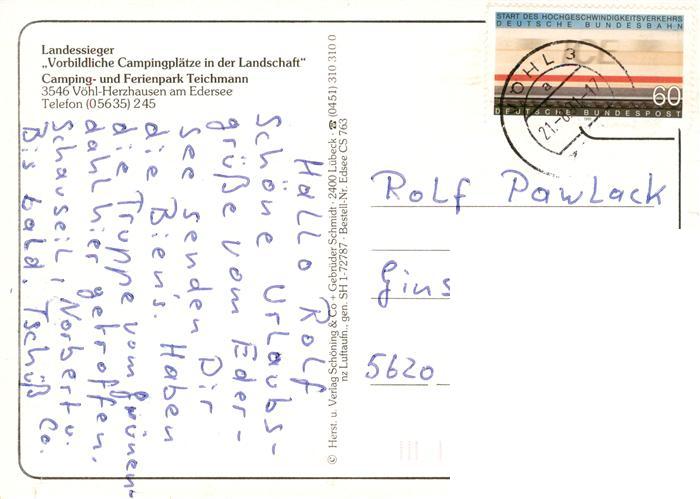 Landessieger
„Vorbildliche Campingplätze in der Landschaft“
Camping- und Ferienpark Teichmann
3546 Vöhl-Herzhausen am Edersee
Telefon (05635) 245
Hallo Rolf
Schöne Urlaubs-
grüße vom Eder-
see senden Dir
die Biens. Haben
die Truppe vom Grünen-
dahl hier getroffen.
Schauseil, Norbert u. Co.
Bis bald. Tschüß
© Herst. u. Verlag Schöning & Co + Gebrüder Schmidt · 2400 Lübeck ☎ (0451) 310 310 0
nz Luftaufn., gen. SH 1-72787 · Bestell-Nr. Edsee CS 763
START DES HOCHGESCHWINDIGKEITSVERKEHRS
DEUTSCHE BUNDESBAHN
60
DEUTSCHE BUNDESPOST
VÖHL 3
a
Rolf Pawlack
Gins
5620